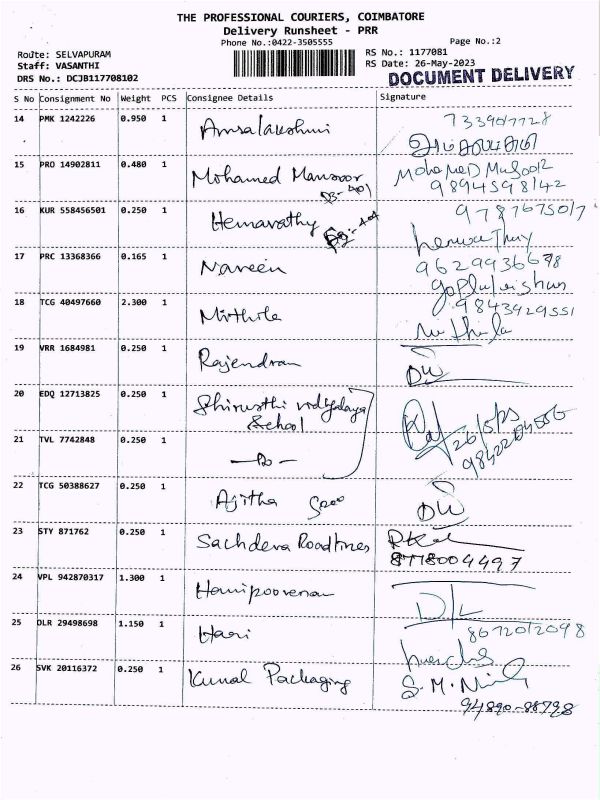 THE PROFESSIONAL COURIERS, COIMBATORE
Delivery Runsheet - PRR
Phone No.:0422-3505555
Page No.:2
Route: SELVAPURAM
RS No.: 1177081
Staff: VASANTHI
RS Date: 26-May-2023
DRS No.: DCJB117708102
DOCUMENT DELIVERY
S No Consignment No Weight PCS Consignee Details Signature
14 PMK 1242226 0.950 1 Amsalakshmi 7339017728
15 PRO 14902811 0.480 1 Mohamed Mansoor
9894598142
16 KUR 558456501 0.250 1 Hemavathy
17 PRC 13368366 0.165 1 Naveen 9629936678
18 TCG 40497660 2.300 1 Mithile 9843929551
Mithila
19 VRR 1684981 0.250 1 Rajendran
20 EDQ 12713825 0.250 1 Shirusthi vidyalaya
School
26/5/23
21 TVL 7742848 0.250 1 —Do—
22 TCG 50388627 0.250 1 Ajitha
23 STY 871762 0.250 1 Sachdeva Roadlines
8778004497
24 VPL 942870317 1.300 1 Hanipoovenan D/L
25 DLR 29498698 1.150 1 Hari
26 SVK 20116372 0.250 1 Kunal Packaging
94890-88798